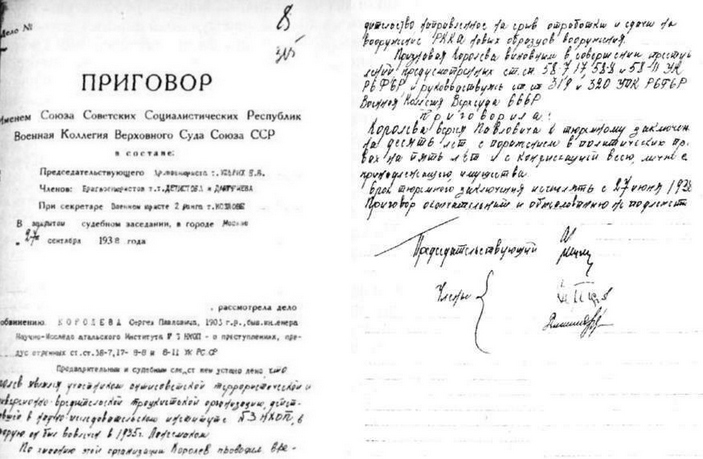 Дело №
8
ПРИГОВОР
Именем Союза Советских Социалистических Республик
Военная Коллегия Верховного Суда Союза ССР
в составе:
Председательствующего
Членов: Бригвоенюристов т.т. ДЕТИСТОВА и
При секретаре Военном юристе 2 ранга т.КОЗЛОВЕ
В закрытом судебном заседании, в городе Москве
"27" сентября 1938 года
, рассмотрела дело
обвинению КОРОЛЕВА Сергея Павловича, 1903 г.р., быв.инженера
Научно-Исследовательского Института № 3 НКОП - о преступлениях, пре-
дусмотренных ст.ст.58-7,17- 8-8 и 8-11 УК РСФСР
Предварительным и судебным следствием установлено, что
Королев являлся участником антисоветской террористической и
диверсионно-вредительской троцкистской организации, действо-
вавшей в научно-исследовательском институте №3 НКОП, в
которую он был вовлечен в 1935г. Лангемаком
По заданию этой организации Королев проводил вре-
дительство направленное на срыв отработки и сдачи на
вооружение РККА новых образцов вооружения.
Признавая Королева виновным в совершении преступ-
лений предусмотренных ст.ст. 58-7, 17, 58-8 и 58-11 УК
РСФСР и руководствуясь ст.ст. 319 и 320 УПК РСФСР
Военная Коллегия Верхсуда СССР
Приговорила:
Королева Сергея Павловича к тюремному заключен.
на десять лет с поражением в политических пра-
вах на пять лет и с конфискацией всего, лично ему
принадлежащего имущества.
Срок тюремного заключения исчислять с 27 июня 1938
Приговор окончательный и обжалованию не подлежит
Председательствующий
Члены